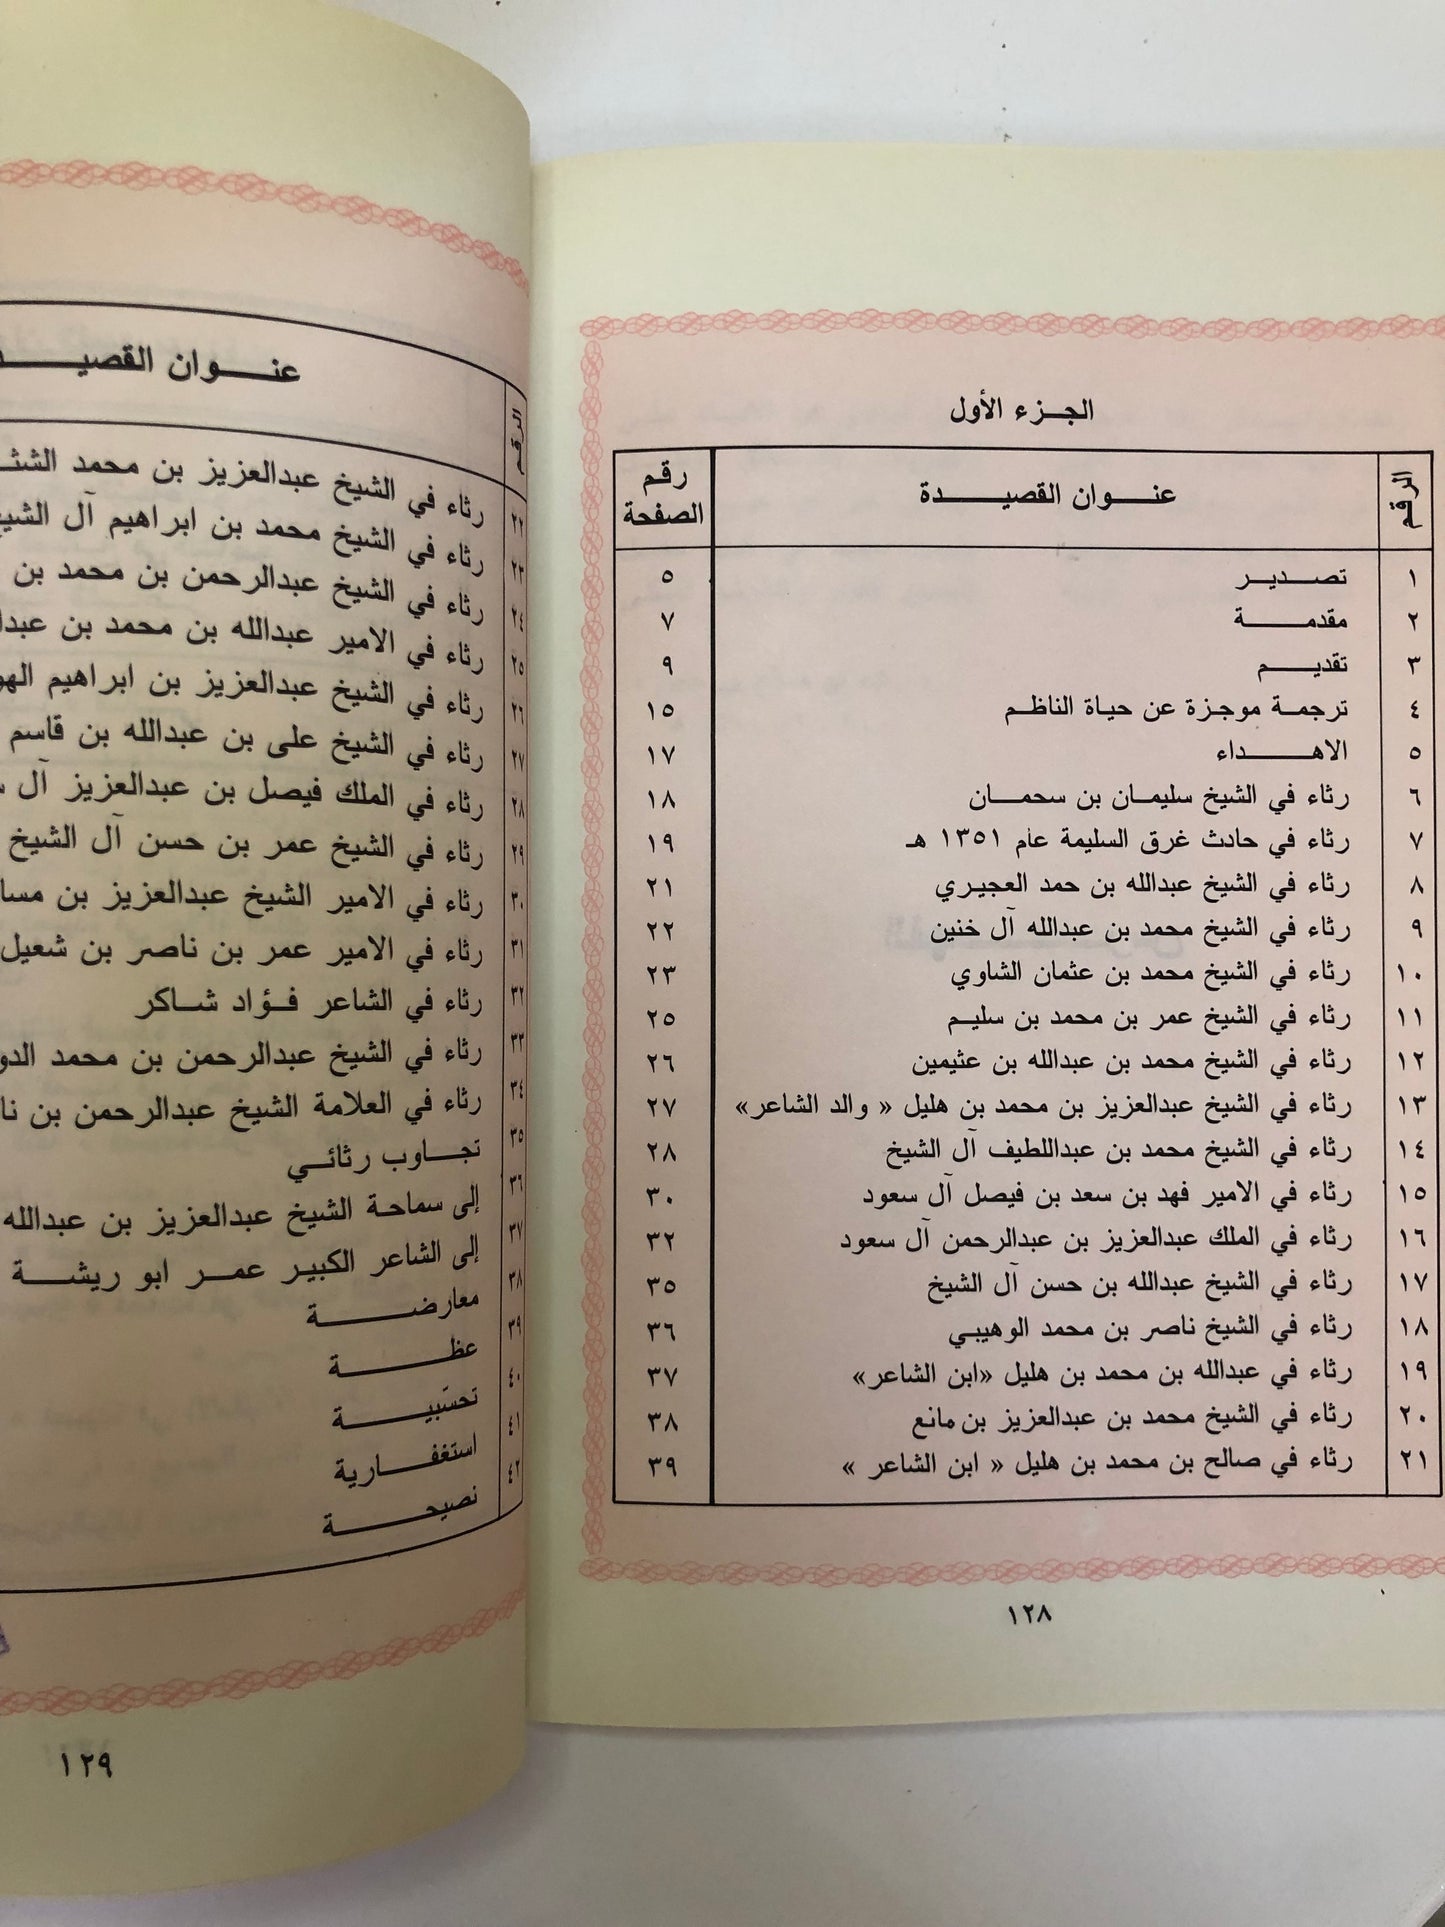 الجزء الأول
الرقم عنوان القصيدة رقم الصفحة
١ تصدير ٥
٢ مقدمة ٧
٣ تقديم ٩
٤ ترجمة موجزة عن حياة الناظم ١٥
٥ الاهداء ١٧
٦ رثاء في الشيخ سليمان بن سحمان ١٨
٧ رثاء في حادث غرق السليمة عام ١٣٥١ هـ ١٩
٨ رثاء في الشيخ عبدالله بن حمد العجيري ٢١
٩ رثاء في الشيخ محمد بن عبدالله آل خنين ٢٢
١٠ رثاء في الشيخ محمد بن عثمان الشاوي ٢٣
١١ رثاء في الشيخ عمر بن محمد بن سليم ٢٥
١٢ رثاء في الشيخ محمد بن عبدالله بن عثيمين ٢٦
١٣ رثاء في الشيخ عبدالعزيز بن محمد بن هليل « والد الشاعر» ٢٧
١٤ رثاء في الشيخ محمد بن عبداللطيف آل الشيخ ٢٨
١٥ رثاء في الامير فهد بن سعد بن فيصل آل سعود ٣٠
١٦ رثاء في الملك عبدالعزيز بن عبدالرحمن آل سعود ٣٢
١٧ رثاء في الشيخ عبدالله بن حسن آل الشيخ ٣٥
١٨ رثاء في الشيخ ناصر بن محمد الوهيبي ٣٦
١٩ رثاء في عبدالله بن محمد بن هليل «ابن الشاعر» ٣٧
٢٠ رثاء في الشيخ محمد بن عبدالعزيز بن مانع ٣٨
٢١ رثاء في صالح بن محمد بن هليل « ابن الشاعر » ٣٩
١٢٨
الرقم عنوان
٢٢ رثاء في الشيخ عبدالعزيز بن محمد
٢٣ رثاء في الشيخ محمد بن ابراهيم آل
٢٤ رثاء في الشيخ عبدالرحمن بن محمد بن
٢٥ رثاء في الامير عبدالله بن محمد بن
٢٦ رثاء في الشيخ عبدالعزيز بن ابراهيم
٢٧ رثاء في الشيخ على بن عبدالله بن قاسم
٢٨ رثاء في الملك فيصل بن عبدالعزيز آل
٢٩ رثاء في الشيخ عمر بن حسن آل الشيخ
٣٠ رثاء في الامير الشيخ عبدالعزيز بن
٣١ رثاء في الامير عمر بن ناصر بن شعيل
٣٢ رثاء في الشاعر فؤاد شاكر
٣٣ رثاء في الشيخ عبدالرحمن بن محمد
٣٤ رثاء في العلامة الشيخ عبدالرحمن بن
٣٥ تجاوب رثائي
٣٦ إلى سماحة الشيخ عبدالعزيز بن عبدالله
٣٧ إلى الشاعر الكبير عمر ابو ريشة
٣٨ معارضة
٣٩ عظة
٤٠ تحسّبية
٤١ استغفارية
٤٢ نصيحة
١٢٩